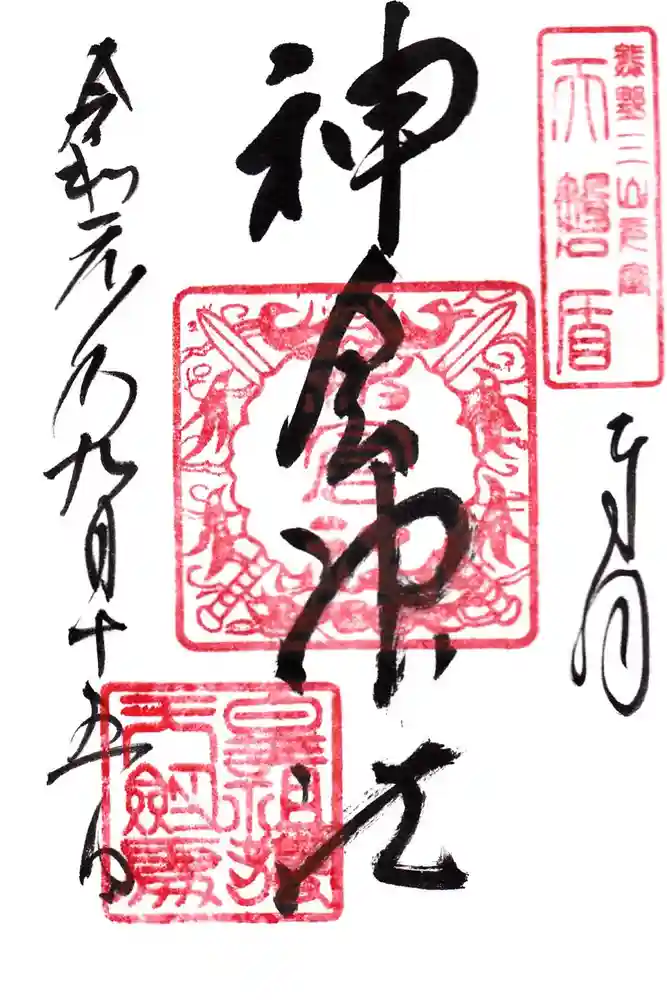 熊野三山元宮
天磐盾
奉拝
神倉神社
皇祖授
天劔處
令和元年九月十五日